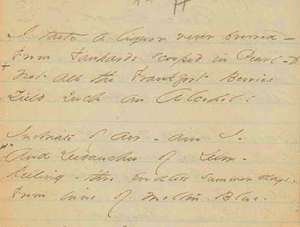 I taste a liquor never brewed –
From Tankards scooped in Pearl –
+ Not all the Frankfort Berries
Yield such an Alcohol!
Inebriate of Air – am I –
And Debauchee of Dew –
Reeling – thro endless summer days –
From inns of Molten Blue –